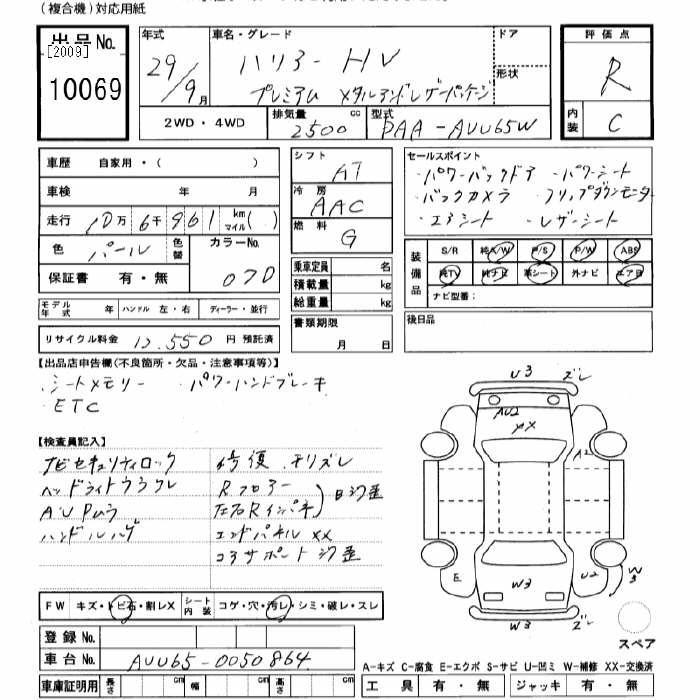 (複合機)対応用紙
出品No.
[2009]
10069
年式
29/9月
車名・グレード
ハリアー HV
プレミアム メタルアンドレザーパッケージ
ドア
形状
2WD・4WD
排気量
2500 cc
型式
DAA-AVU65W
評価点
R
内装
C
車歴 自家用・( )
車検 年 月
走行 10万 6千 961 km マイル( )
色 パール
色替
カラーNo.
070
保証書 有・無
モデル年式 年
ハンドル 左・右
ディーラー・並行
リサイクル料金 12,550 円 預託済
シフト
AT
冷房
AAC
燃料
G
乗車定員 名
積載量 kg
総重量 kg
書類期限
月 日
セールスポイント
・パワーバックドア ・パワーシート
・バックカメラ ・フリップダウンモニター
・エアシート ・レザーシート
装備品
S/R 純A/W P/S P/W ABS
純TV 純ナビ 革シート 外ナビ エアB
ナビ型番:
後日品
【出品店申告欄(不良箇所・欠品・注意事項等)】
・シートメモリー ・パワーハンドブレーキ
・ETC
【検査員記入】
ナビセキュリティロック
ヘッドライトウラワレ
AUPムラ
ハンドルハゲ
修復 モリズレ
Rフロアー
左右Rインパネ
凹歪
エンドパネル XX
コアサポート 歪
FW キズ・トビ石・割レX
シート内装 コゲ・穴・汚レ・シミ・破レ・スレ
登録No.
車台No. AVU65-0050864
車庫証明用 長さ cm 幅 cm 高さ cm
U3 ズレ
AU2
XX
A2
E
W3
U2
W3
W3 ズレ
スペア
A-キズ C-腐食 E-エクボ S-サビ U-凹ミ W-補修 XX-交換済
工具 有・無 ジャッキ 有・無